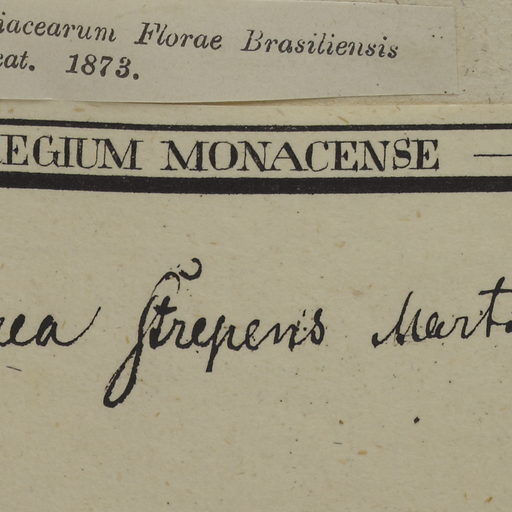 iacearum Florae Brasiliensis
eat. 1873.
EGIUM MONACENSE —
rea Strepens Mart.